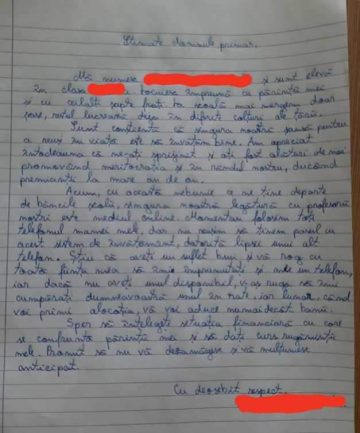 Stimate domnule primar,
Mă numesc și sunt elevă
în clasa locuiesc împreună cu părinții mei
și cu ceilalți șapte frați. La școală mai mergem doar
șase, restul lucrează deja în diferite colțuri ale țării.
Sunt conștientă că singura noastră șansă pentru
a reuși în viață este să învățăm bine. Am apreciat
întotdeauna că ne-ați sprijinit și ați fost alături de noi
promovând meritocrația și în rândul nostru, ducând
premianții la mare an de an.
Acum, cu această nebunie ce ne ține departe
de băncile școlii, singura noastră legătură cu profesorii
noștri este mediul online. Momentan folosim toți
telefonul mamei mele, dar nu reușim să ținem pasul cu
acest sistem de învățământ, datorită lipsei unui alt
telefon. Știu că aveți un suflet bun și vă rog cu
toată ființa mea să-mi împrumutați și mie un telefon,
iar dacă nu aveți unul disponibil, v-aș ruga să-mi
cumpărați dumneavoastră unul în rate, iar lunar, când
voi primi alocația, vă voi aduce numaidecât banii.
Sper să înțelegeți situația financiară cu care
se confruntă părinții mei și să dați curs rugăminții
mele. Promit să nu vă dezamăgesc și vă mulțumesc
anticipat.
Cu deosebit respect,